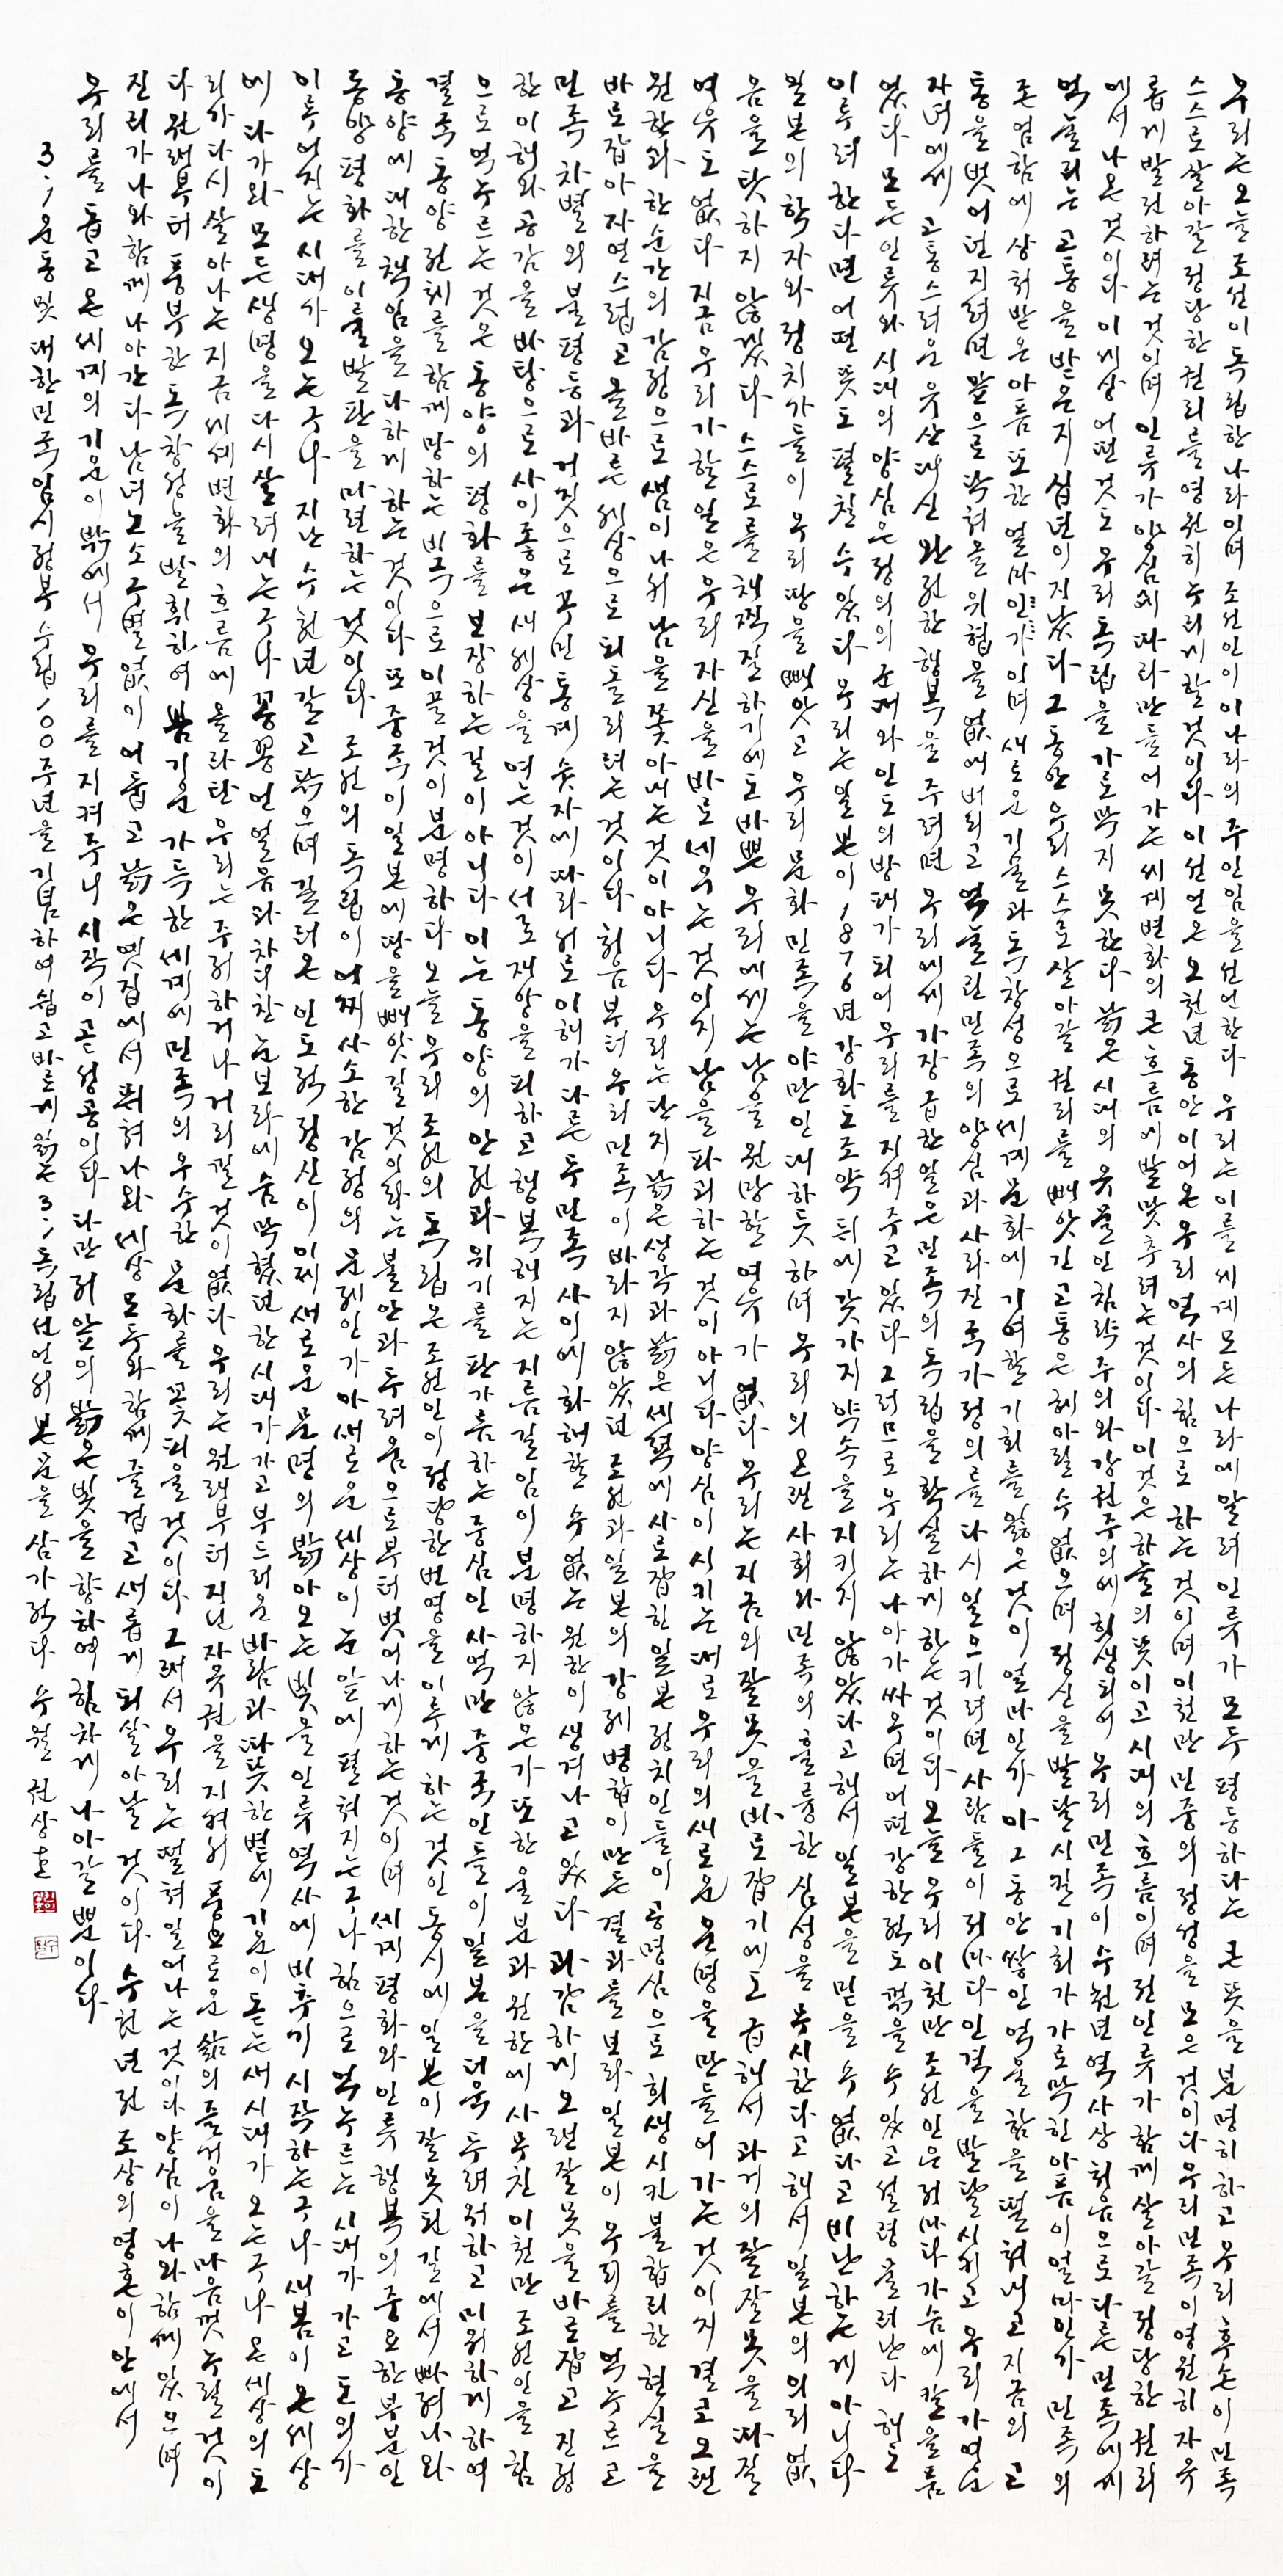 우리는 오늘 조선이 독립한 나라이며 조선인이 이 나라의 주인임을 선언한다 우리는 이를 세계 모든 나라에 알려 인류가 모두 평등하다는 큰 뜻을 분명히 하고 우리 후손이 민족
스스로 살아갈 정당한 권리를 영원히 누리게 할 것이다 이 선언은 오천 년 동안 이어온 우리 역사의 힘으로 하는 것이며 이천만 민중의 정성을 모은 것이다 우리 민족이 영원히 자유
롭게 발전하려는 것이며 인류가 양심에 따라 만들어가는 세계 변화의 큰 흐름에 발맞추려는 것이다 이것은 하늘의 뜻이고 시대의 흐름이며 전 인류가 함께 살아갈 정당한 권리
에서 나온 것이다 이 세상 어떤 것도 우리 독립을 가로막지 못한다 낡은 시대의 유물인 침략주의와 강권주의에 희생되어 우리 민족이 수천 년 역사상 처음으로 다른 민족에게
억눌리는 고통을 받은 지 십 년이 지났다 그동안 우리 스스로 살아갈 권리를 빼앗긴 고통은 헤아릴 수 없으며 정신을 발달시킬 기회가 가로막힌 아픔이 얼마인가 민족의
존엄함에 상처받은 아픔 또한 얼마인가이며 새로운 기술과 독창성으로 세계 문화에 기여할 기회를 잃은 것이 얼마인가 아 그동안 쌓인 억울함을 떨쳐내고 지금의 고
통을 벗어던지려면 앞으로 닥쳐올 위협을 없애버리고 억눌린 민족의 양심과 사라진 국가 정의를 다시 일으키려면 사람들이 저마다 인격을 발달시키고 우리 가여운
자녀에게 고통스러운 유산 대신 완전한 행복을 주려면 우리에게 가장 급한 일은 민족의 독립을 확실하게 하는 것이다 오늘 우리 이천만 조선인은 저마다 가슴에 칼을 품
었다 모든 인류와 시대의 양심은 정의의 군대와 인도의 방패가 되어 우리를 지켜주고 있다 그러므로 우리는 나아가 싸우면 어떤 강한 적도 꺾을 수 있고 설령 물러난다 해도
이루려 한다면 어떤 뜻도 펼칠 수 있다 우리는 일본이 1876년 강화도조약 뒤에 갖가지 약속을 지키지 않았다고 해서 일본을 믿을 수 없다고 비난하는 게 아니다
일본의 학자와 정치가들이 우리 땅을 빼앗고 우리 문화 민족을 야만인 대하듯 하며 우리의 오랜 사회와 민족의 훌륭한 심성을 무시한다고 해서 일본의 의리 없
음을 탓하지 않겠다 스스로를 채찍질하기에도 바쁜 우리에게는 남을 원망할 여유가 없다 우리는 지금의 잘못을 바로잡기에도 급해서 과거의 잘잘못을 따질
여유도 없다 지금 우리가 할 일은 우리 자신을 바로 세우는 것이지 남을 파괴하는 것이 아니다 양심이 시키는 대로 우리의 새로운 운명을 만들어가는 것이지 결코 오랜
원한과 한순간의 감정으로 샘이 나서 남을 쫓아내는 것이 아니다 우리는 단지 낡은 생각과 낡은 세력에 사로잡힌 일본 정치인들이 공명심으로 희생시킨 불합리한 현실을
바로잡아 자연스럽고 올바른 세상으로 되돌리려는 것이다 처음부터 우리 민족이 바라지 않았던 조선과 일본의 강제 병합이 만든 결과를 보라 일본이 우리를 억누르고
민족 차별의 불평등과 거짓으로 꾸민 통계 숫자에 따라 서로 이해가 다른 두 민족 사이에 화해할 수 없는 원한이 생겨나고 있다 과감하게 오랜 잘못을 바로잡고 진정
한 이해와 공감을 바탕으로 사이좋은 새 세상을 여는 것이 서로 재앙을 피하고 행복해지는 지름길임이 분명하지 않은가 또한 울분과 원한에 사무친 이천만 조선인을 힘
으로 억누르는 것은 동양의 평화를 보장하는 길이 아니다 이는 동양의 안전과 위기를 판가름하는 중심인 사억만 중국인들이 일본을 더욱 두려워하고 미워하게 하여
결국 동양 전체를 함께 망하는 비극으로 이끌 것이 분명하다 오늘 우리 조선의 독립은 조선인이 정당한 번영을 이루게 하는 것인 동시에 일본이 잘못된 길에서 빠져나와
동양에 대한 책임을 다하게 하는 것이다 또 중국이 일본에 땅을 빼앗길 것이라는 불안과 두려움으로부터 벗어나게 하는 것이며 세계 평화와 인류 행복의 중요한 부분인
동양 평화를 이룰 발판을 마련하는 것이다 조선의 독립이 어찌 사소한 감정의 문제인가 아 새로운 세상이 눈앞에 펼쳐지는구나 힘으로 억누르는 시대가 가고 도의가
이루어지는 시대가 오는구나 지난 수천 년 갈고 닦으며 길러온 인도적 정신이 이제 새로운 문명의 밝아오는 빛을 인류 역사에 비추기 시작하는구나 새봄이 온 세상
에 다가와 모든 생명을 다시 살려내는구나 꽁꽁 언 얼음과 차디찬 눈보라에 숨 막혔던 한 시대가 가고 부드러운 바람과 따뜻한 볕에 기운이 돋는 새 시대가 오는구나 온 세상의 도
리가 다시 살아나는 지금 세계 변화의 흐름에 올라탄 우리는 주저하거나 거리낄 것이 없다 우리는 원래부터 지닌 자유권을 지켜서 풍요로운 삶의 즐거움을 마음껏 누릴 것이
다 원래부터 풍부한 독창성을 발휘하여 봄기운 가득한 세계에 민족의 우수한 문화를 꽃피울 것이다 그래서 우리는 떨쳐 일어나는 것이다 양심이 나와 함께 있으며
진리가 나와 함께 나아간다 남녀노소 구별 없이 어둡고 낡은 옛집에서 뛰쳐나와 세상 모두와 함께 즐겁고 새롭게 되살아날 것이다 수천 년 전 조상의 영혼이 안에서
우리를 돕고 온 세계의 기운이 밖에서 우리를 지켜주니 시작이 곧 성공이다 다만 저 앞의 밝은 빛을 향하여 힘차게 나아갈 뿐이다
3·1운동 및 대한민국임시정부 수립 100주년을 기념하여 쉽고 바르게 읽는 3·1독립선언서 본문을 삼가 적다 수월 권상호